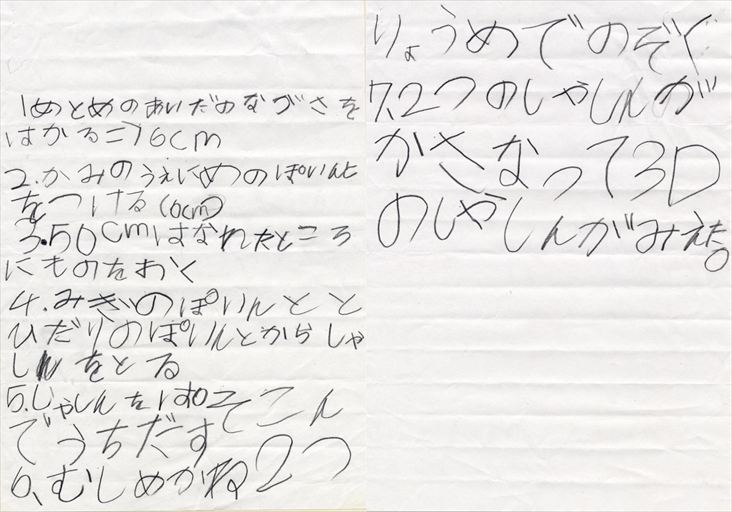 1めとめのあいだのながさを
はかる⇒6cm
2.かみのうえにめのぽいんと
をつける(6cm)
3.50cmはなれたところ
にものをおく
4.みぎのぽいんとと
ひだりのぽいんとからしゃ
しんをとる
5.しゃしんをぱそこん
でうちだす
6、むしめがね2つ
りょうめでのぞく
7.2つのしゃしんが
かさなって3D
のしゃしんがみえた。